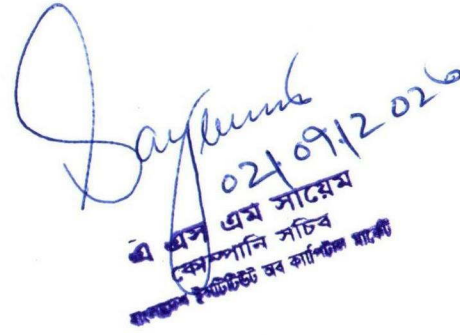 Sayeum
02/09/2026
এ এস এম সায়েম
কোম্পানি সচিব
বাংলাদেশ ইন্সটিটিউট অব ক্যাপিটাল মার্কেট